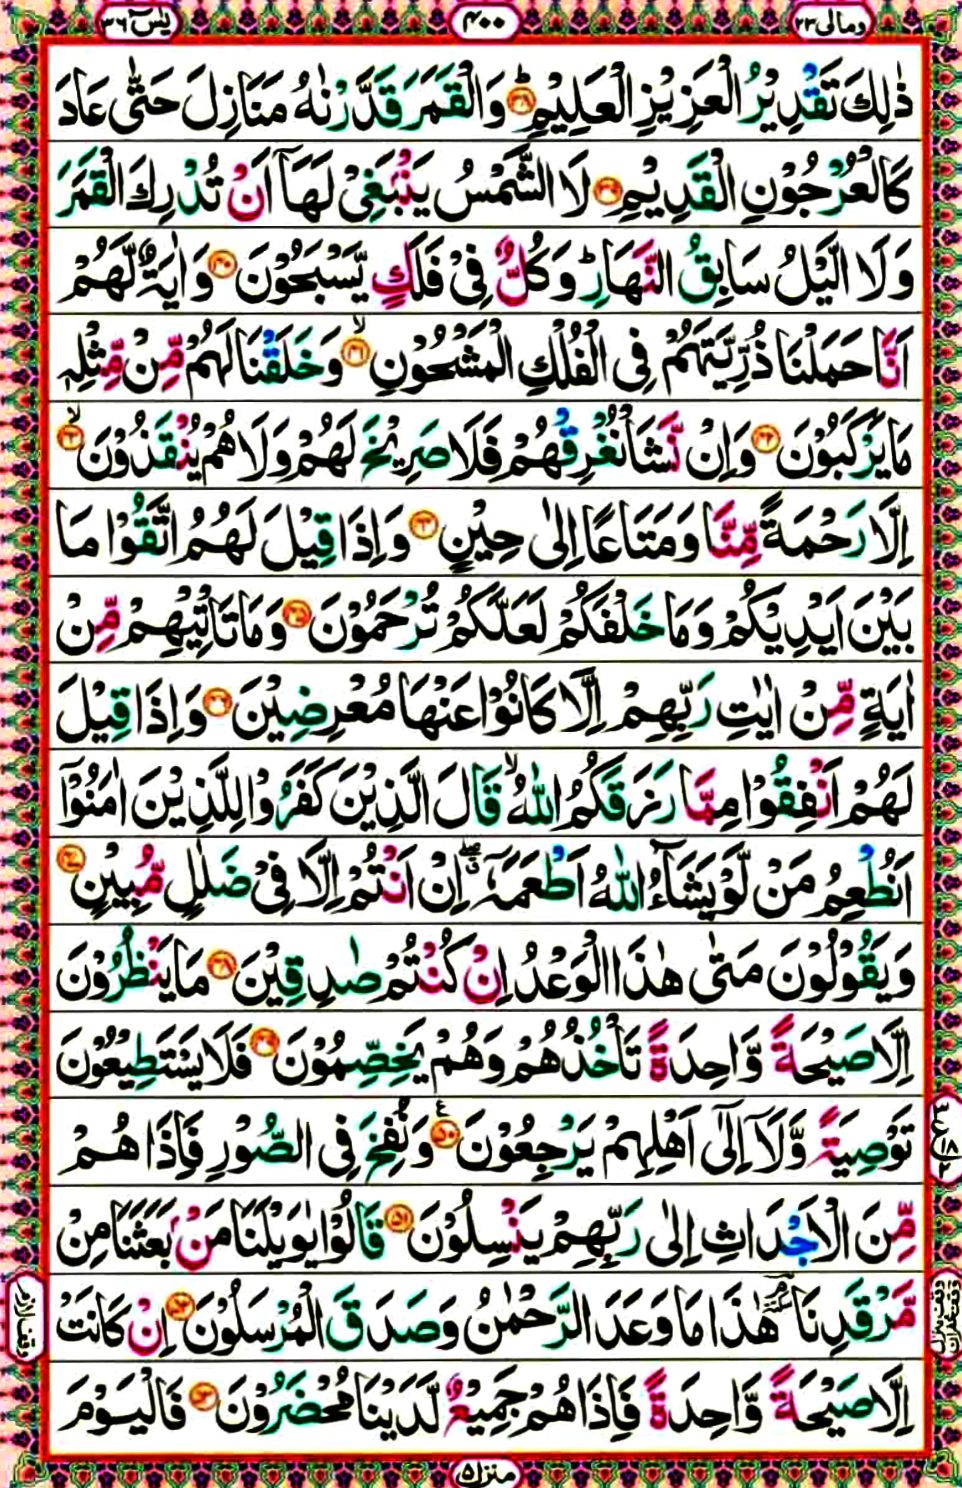 ومالی ۲۳
۴۰۰
یٰسٓ ۳۶
ذٰلِكَ تَقْدِيْرُ الْعَزِيْزِ الْعَلِيْمِؕ ۳۸ وَالْقَمَرَ قَدَّرْنٰهُ مَنَازِلَ حَتّٰى عَادَ
كَالْعُرْجُوْنِ الْقَدِيْمِ ۳۹ لَا الشَّمْسُ يَنْۢبَغِىْ لَهَاۤ اَنْ تُدْرِكَ الْقَمَرَ
وَلَا الَّيْلُ سَابِقُ النَّهَارِؕ وَكُلٌّ فِىْ فَلَكٍ يَّسْبَحُوْنَ ۴۰ وَاٰيَةٌ لَّهُمْ
اَنَّا حَمَلْنَا ذُرِّيَّتَهُمْ فِى الْفُلْكِ الْمَشْحُوْنِۙ ۴۱ وَخَلَقْنَا لَهُمْ مِّنْ مِّثْلِهٖ
مَا يَرْكَبُوْنَ ۴۲ وَاِنْ نَّشَاْ نُغْرِقْهُمْ فَلَا صَرِيْخَ لَهُمْ وَلَا هُمْ يُنْقَذُوْنَۙ ۴۳
اِلَّا رَحْمَةً مِّنَّا وَمَتَاعًا اِلٰى حِيْنٍ ۴۴ وَاِذَا قِيْلَ لَهُمُ اتَّقُوْا مَا
بَيْنَ اَيْدِيْكُمْ وَمَا خَلْفَكُمْ لَعَلَّكُمْ تُرْحَمُوْنَ ۴۵ وَمَا تَاْتِيْهِمْ مِّنْ
اٰيَةٍ مِّنْ اٰيٰتِ رَبِّهِمْ اِلَّا كَانُوْا عَنْهَا مُعْرِضِيْنَ ۴۶ وَاِذَا قِيْلَ
لَهُمْ اَنْفِقُوْا مِمَّا رَزَقَكُمُ اللّٰهُۙ قَالَ الَّذِيْنَ كَفَرُوْا لِلَّذِيْنَ اٰمَنُوْۤا
اَنُطْعِمُ مَنْ لَّوْ يَشَآءُ اللّٰهُ اَطْعَمَهٗۤ ۖ اِنْ اَنْتُمْ اِلَّا فِىْ ضَلٰلٍ مُّبِيْنٍ ۴۷
وَيَقُوْلُوْنَ مَتٰى هٰذَا الْوَعْدُ اِنْ كُنْتُمْ صٰدِقِيْنَ ۴۸ مَا يَنْظُرُوْنَ
اِلَّا صَيْحَةً وَّاحِدَةً تَاْخُذُهُمْ وَهُمْ يَخِصِّمُوْنَ ۴۹ فَلَا يَسْتَطِيْعُوْنَ
تَوْصِيَةً وَّلَاۤ اِلٰٓى اَهْلِهِمْ يَرْجِعُوْنَ ۵۰ وَنُفِخَ فِى الصُّوْرِ فَاِذَا هُمْ
مِّنَ الْاَجْدَاثِ اِلٰى رَبِّهِمْ يَنْسِلُوْنَ ۵۱ قَالُوْا يٰوَيْلَنَا مَنْۢ بَعَثَنَا مِنْ
مَّرْقَدِنَاۘ هٰذَا مَا وَعَدَ الرَّحْمٰنُ وَصَدَقَ الْمُرْسَلُوْنَ ۵۲ اِنْ كَانَتْ
اِلَّا صَيْحَةً وَّاحِدَةً فَاِذَا هُمْ جَمِيْعٌ لَّدَيْنَا مُحْضَرُوْنَ ۵۳ فَالْيَوْمَ
منزل ۵